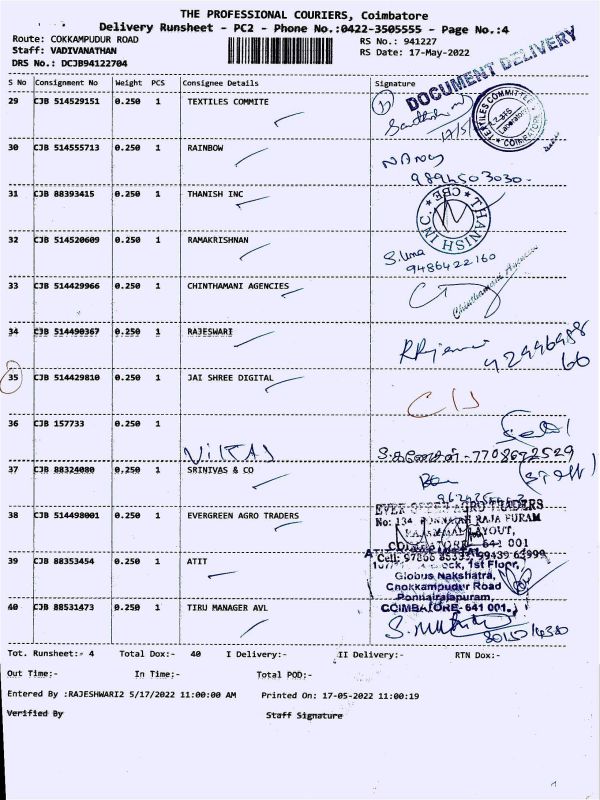 THE PROFESSIONAL COURIERS, Coimbatore
Delivery Runsheet - PC2 - Phone No.:0422-3505555 - Page No.:4
Route: COKKAMPUDUR ROAD RS No.: 941227
Staff: VADIVANATHAN RS Date: 17-May-2022
DRS No.: DCJB94122704
DOCUMENT DELIVERY
S No Consignment No Weight PCS Consignee Details Signature
29 CJB 514529151 0.250 1 TEXTILES COMMITE
TEXTILES COMMITTEE
Laboratory
COIMBATORE
30 CJB 514555713 0.250 1 RAINBOW
NANCY
9894503030
31 CJB 88393415 0.250 1 THANISH INC
THANISH INC. CBE
32 CJB 514520609 0.250 1 RAMAKRISHNAN
S. Uma
9486422160
33 CJB 514429966 0.250 1 CHINTHAMANI AGENCIES
Chinthamani Agencies
34 CJB 514490367 0.250 1 RAJESWARI
35 CJB 514429810 0.250 1 JAI SHREE DIGITAL
36 CJB 157733 0.250 1
VIKAS
7708672529
37 CJB 88324080 0.250 1 SRINIVAS & CO
(Staff)
38 CJB 514498001 0.250 1 EVERGREEN AGRO TRADERS
EVER GREEN AGRO TRADERS
RAJA PURAM
LAYOUT,
COIMBATORE 641 001
39 CJB 88353454 0.250 1 ATIT
1st Floor,
Globus Nakshatra,
Chokkampudur Road
Ponnairajapuram,
COIMBATORE- 641 001.
40 CJB 88531473 0.250 1 TIRU MANAGER AVL
Tot. Runsheet:- 4 Total Dox:- 40 I Delivery:- II Delivery:- RTN Dox:-
Out Time:- In Time:- Total POD:-
Entered By :RAJESHWARI2 5/17/2022 11:00:00 AM Printed On: 17-05-2022 11:00:19
Verified By Staff Signature